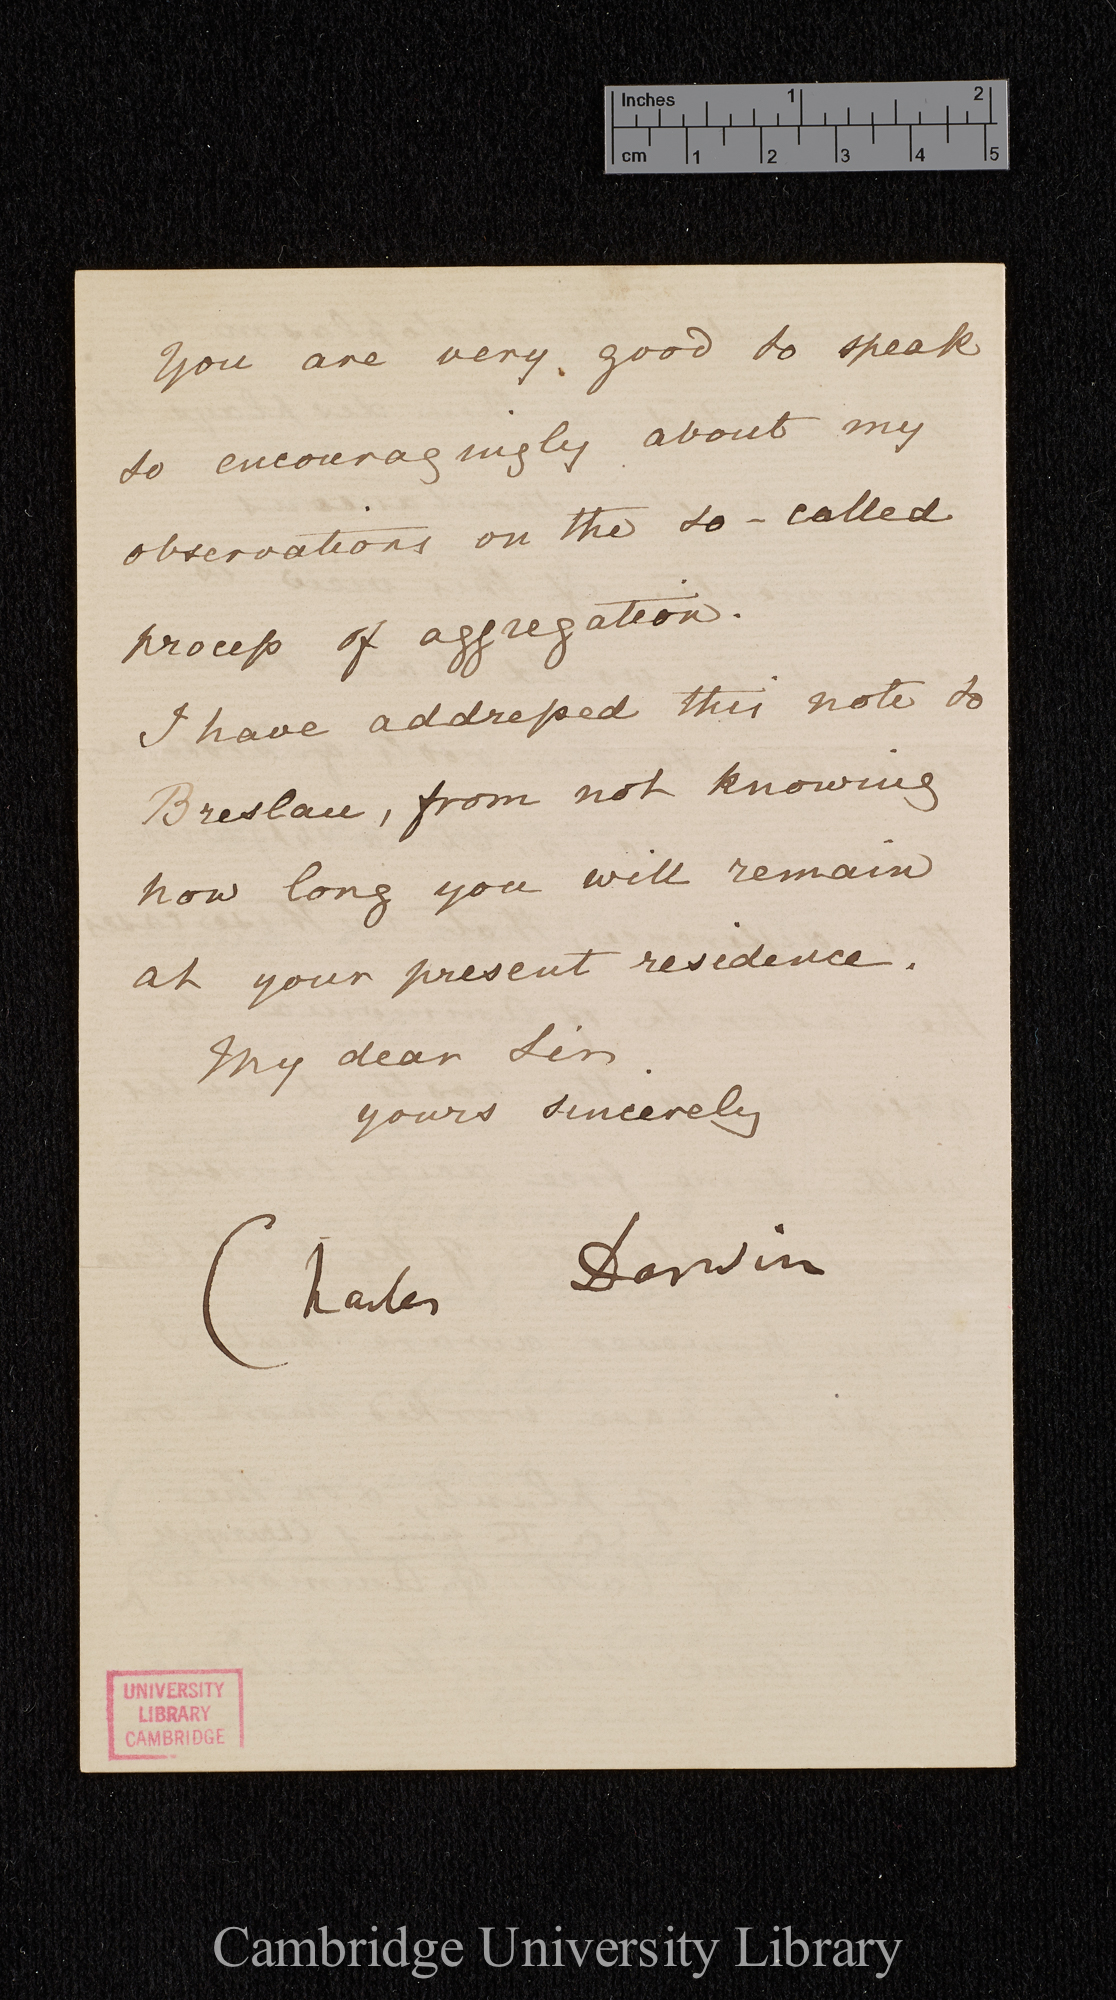 Inches 1 2
cm 1 2 3 4 5
You are very good to speak
so encouragingly about my
observations on the so-called
process of aggregation.
I have addressed this note to
Breslau, from not knowing
how long you will remain
at your present residence.
My dear Sir
yours sincerely
Charles Darwin
UNIVERSITY
LIBRARY
CAMBRIDGE
Cambridge University Library